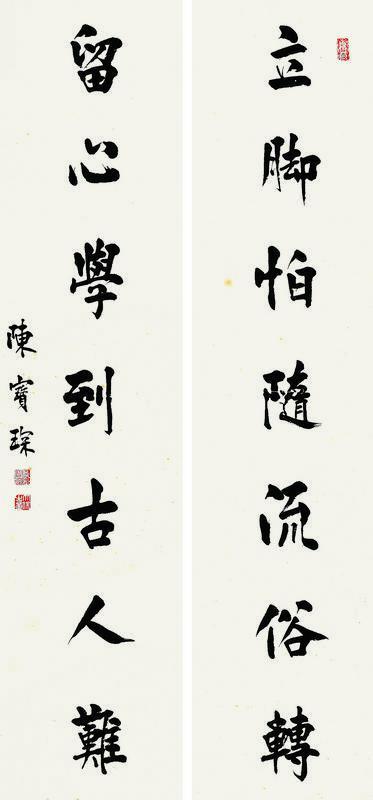 立脚怕隨流俗轉
留心學到古人難
陳寶琛